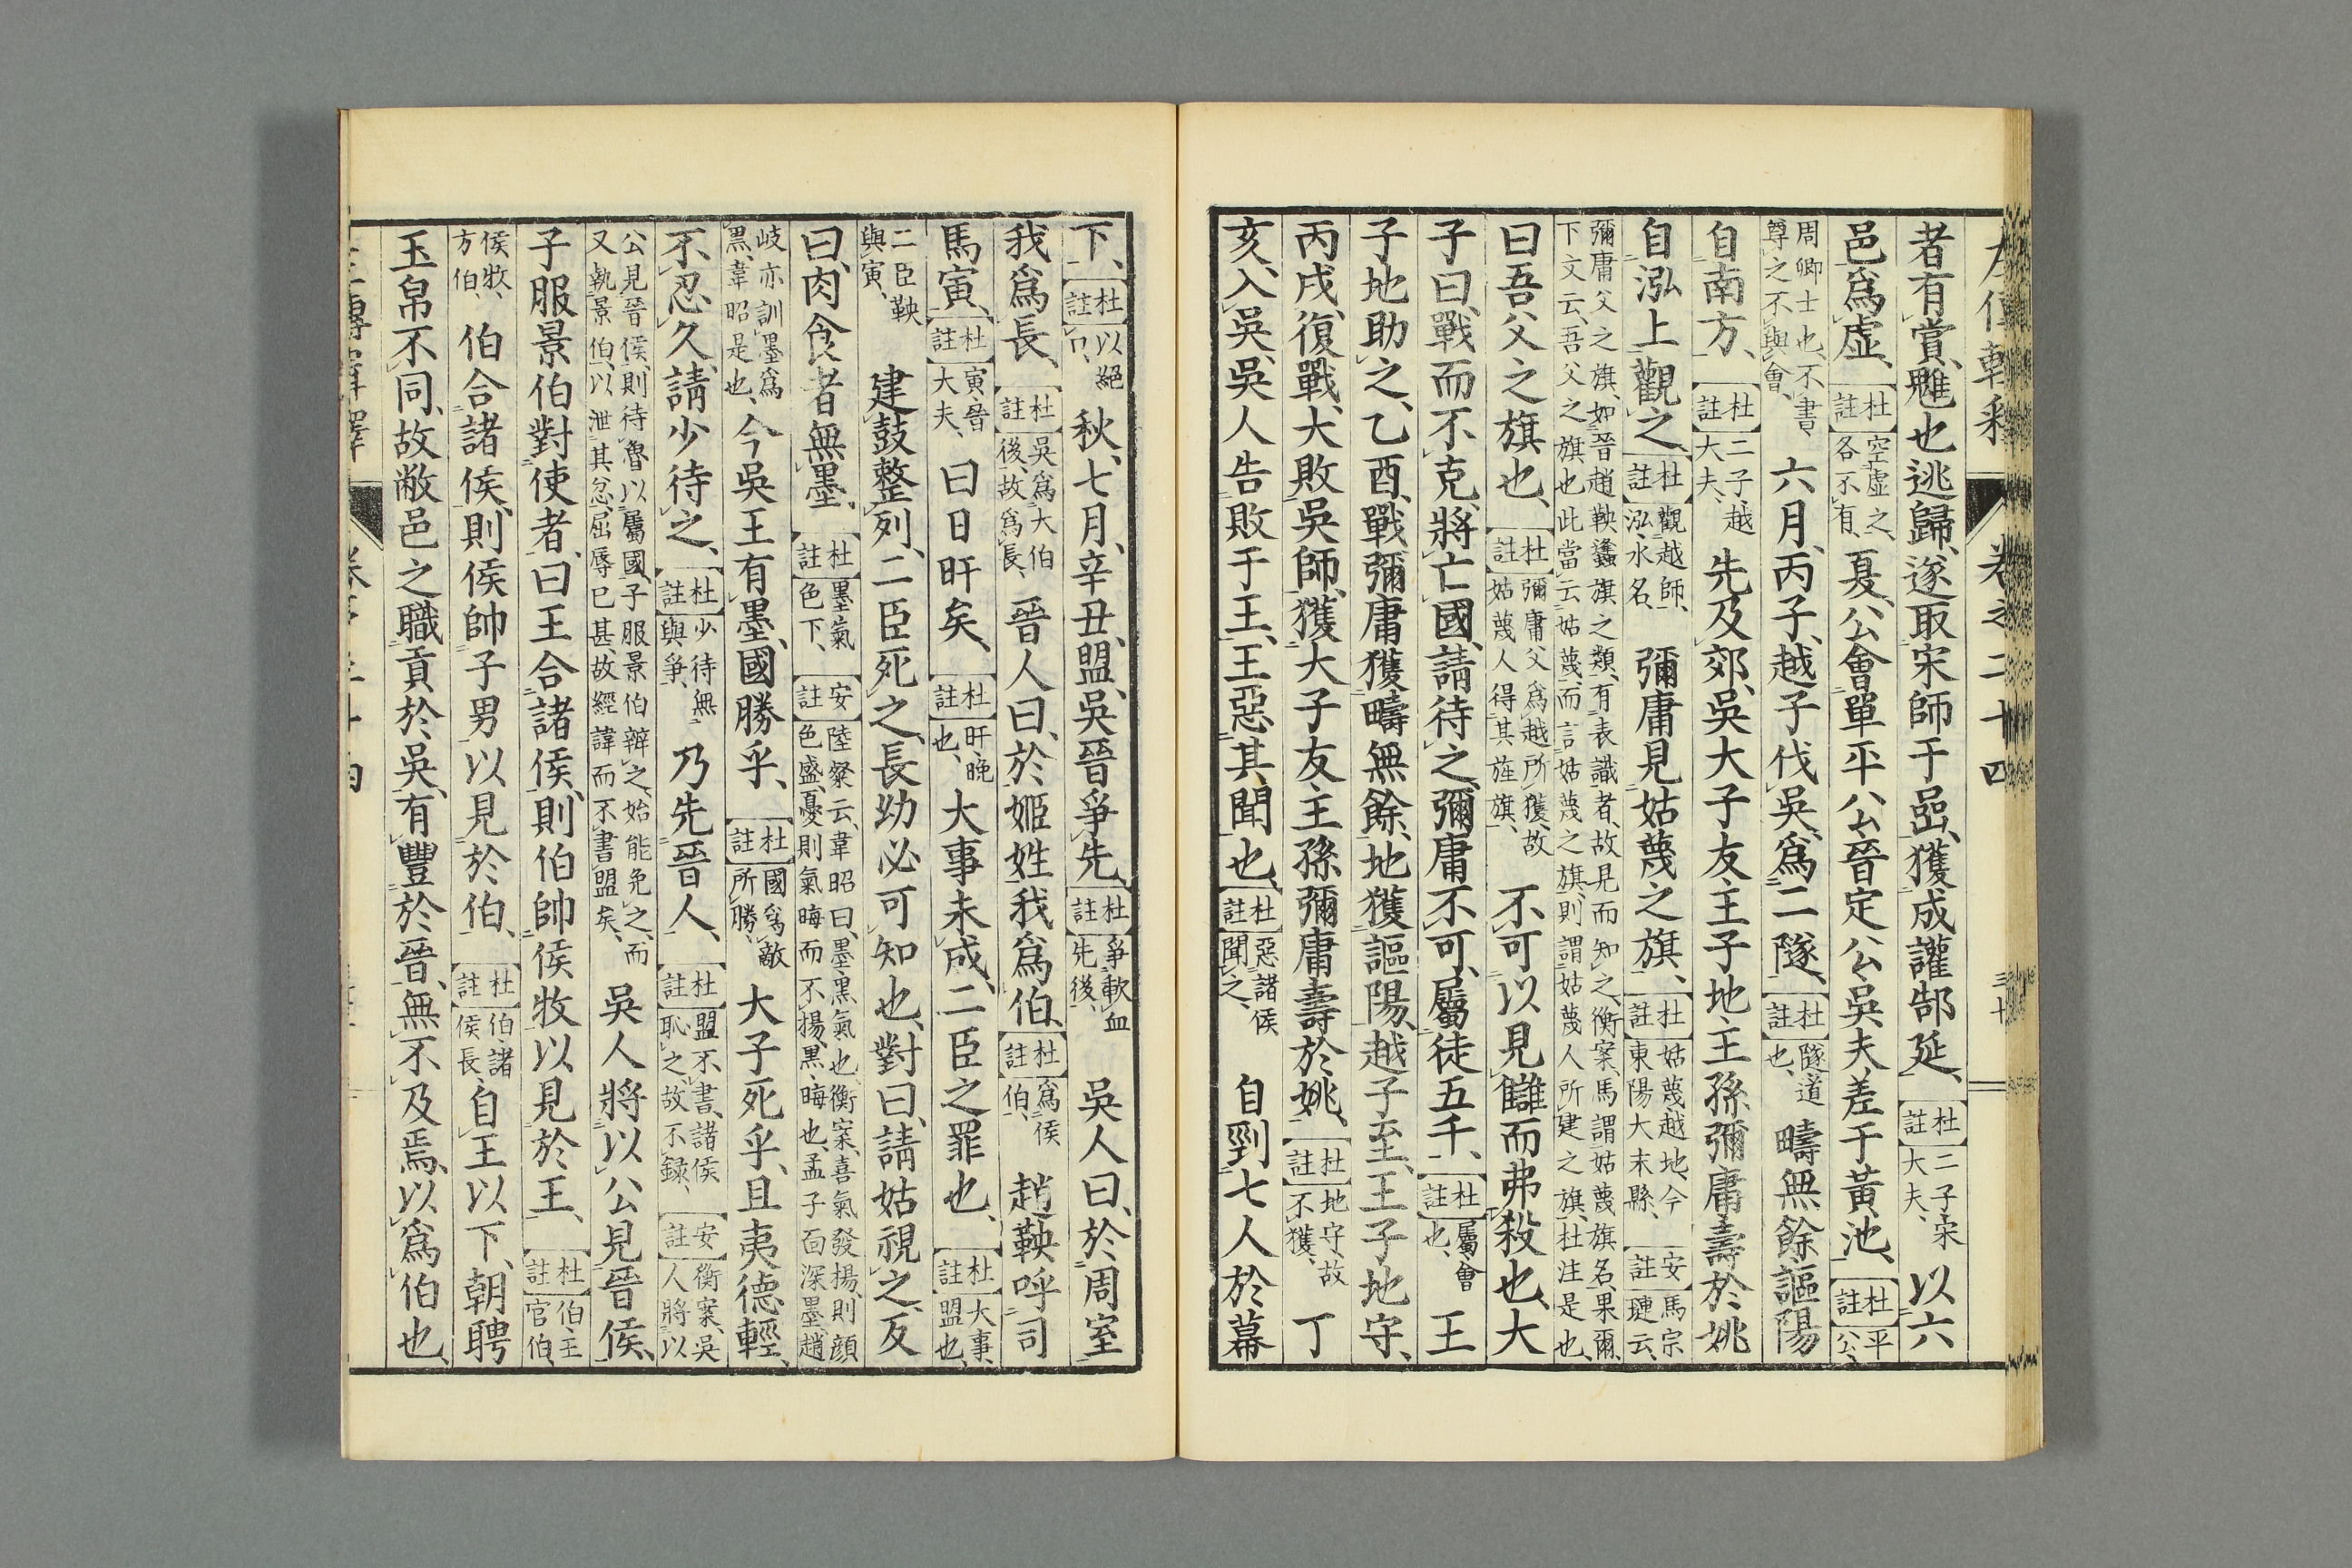 卷之二十四
三十
者有賞、魋也逃歸、遂取宋師于嵒、獲成讙郜延、杜註二子宋大夫、以六
邑爲虛、杜註空虛之、各不有、夏、公會單平公晉定公吳夫差于黃池、杜註平公、
周卿士也、不書、尊之不與會、六月、丙子、越子伐吳、爲二隧、杜註隧道也、疇無餘謳陽
自南方、杜註二子越大夫、先及郊、吳大子友、王子地、王孫彌庸壽於姚
自泓上觀之、杜註觀越師、泓水名、彌庸見姑蔑之旗、杜註姑蔑越地、今東陽大末縣、安註馬宗璉云、
彌庸父之旗、如晉趙鞅蠭旗之類、有表識者、故見而知之、衡案、馬謂姑蔑旗名、果爾、下文云、吾父之旗也、此當云姑蔑、而言姑蔑之旗、則謂姑蔑人所建之旗、杜注是也、
曰吾父之旗也、杜註彌庸父爲越所獲、故姑蔑人得其旌旗、不可以見讎而弗殺也、大
子曰、戰而不克、將亡國、請待之、彌庸不可、屬徒五千、杜註屬會也、王
子地助之、乙酉、戰彌庸獲疇無餘、地獲謳陽、越子至、王子地守、
丙戌、復戰、大敗吳師、獲大子友、王孫彌庸壽於姚、杜註地守、故不獲、丁
亥、入吳、吳人告敗于王、王惡其聞也、杜註惡諸侯聞之、自剄七人於幕
下、杜註以絕口、秋、七月、辛丑、盟、吳晉爭先、杜註爭歃血先後、吳人曰、於周室
我爲長、杜註吳爲大伯後、故爲長、晉人曰、於姬姓我爲伯、杜註爲侯伯、趙鞅呼司
馬寅、杜註寅、晉大夫、曰日旰矣、杜註旰、晚也、大事未成、二臣之罪也、杜註大事、盟也、
二臣鞅與寅、建鼓整列、二臣死之、長幼必可知也、對曰、請姑視之、反
曰、肉食者無墨、杜註墨氣色下、安註陸粲云、韋昭曰、墨、黑氣也、衡案、喜氣發揚、則顏色盛、憂則氣晦而不揚、黑、晦也、孟子面深墨、趙
岐亦訓墨爲黑、韋昭是也、今吳王有墨、國勝乎、杜註國爲敵所勝、大子死乎、且夷德輕、
不忍久、請少待之、杜註少待無與爭、乃先晉人、杜註盟不書、諸侯恥之、故不録、安註衡案、吳人將以
公見晉侯、則待魯以屬國、子服景伯辯之、始能免之、而又執景伯、以泄其忿、屈辱已甚、故經諱而不書盟矣、吳人將以公見晉侯、
子服景伯對使者、曰王合諸侯、則伯帥侯牧以見於王、杜註伯、王官伯、
侯牧、方伯、伯合諸侯、則侯帥子男以見於伯、杜註伯、諸侯長、自王以下、朝聘
玉帛不同、故敝邑之職貢於吳、有豐於晉、無不及焉、以爲伯也、